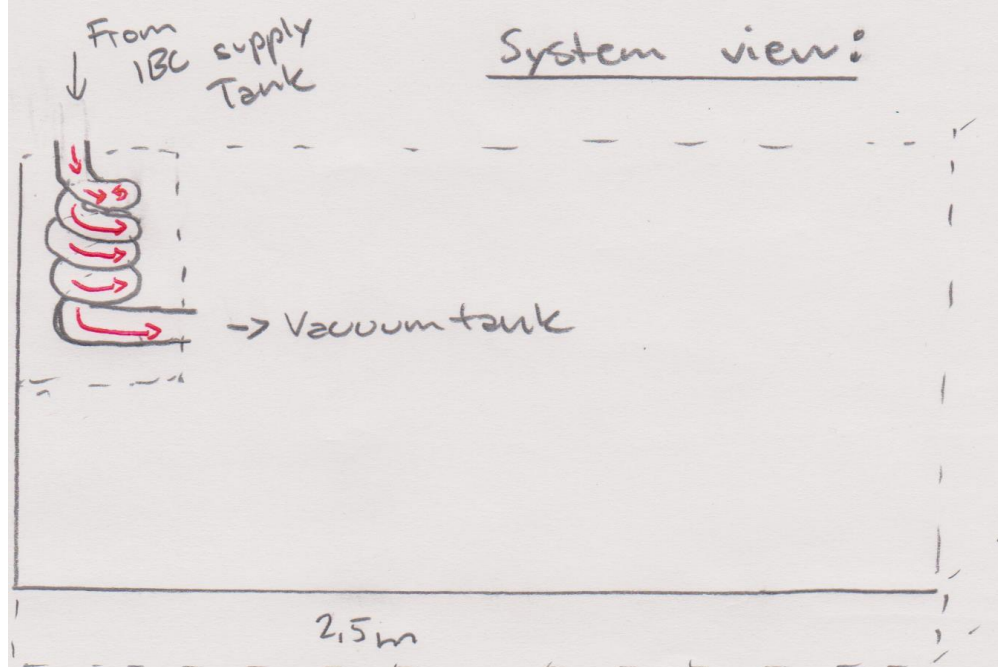 From
IBC supply
Tank
System view:
-> Vacuum tank
2,5m